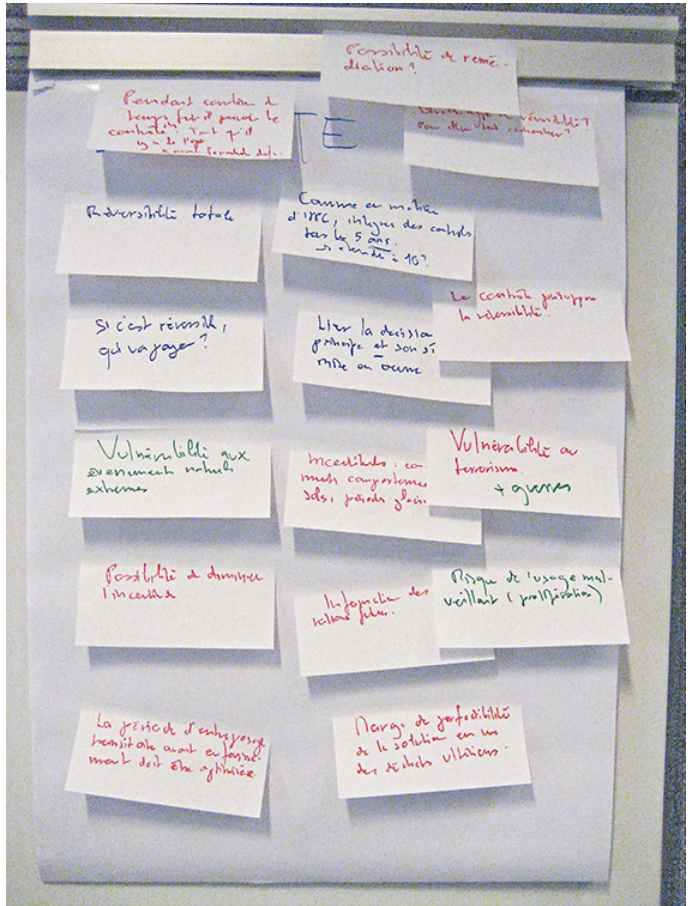 Possibilité de remé-
diation?
Pendant combien de
temps faut-il prévoir le
contrôle? Tant qu'il
y a le
TE
réversibilité?
Réversibilité totale
Comme en matière
d', intégrer des contrôles
tous les 5 ans.
10?
Si c'est réversible,
qui va payer?
Lier la décision
principe et son
mise en œuvre
Le contrôle
la réversibilité.
Vulnérabilité aux
évènements naturels
extrêmes
Incertitudes: com
ments comportement
sols, période glaciai
Vulnérabilité au
terrorisme
+ guerres
Possibilité de diminuer
l'incertitude
Information des
futures.
Risque de l'usage mal-
veillant (prolifération)
La période d'entreposage
transitoire avant enfouisse-
ment doit être optimisée.
Marge de perfectibilité
de la solution en vue
des déchets ultérieurs.